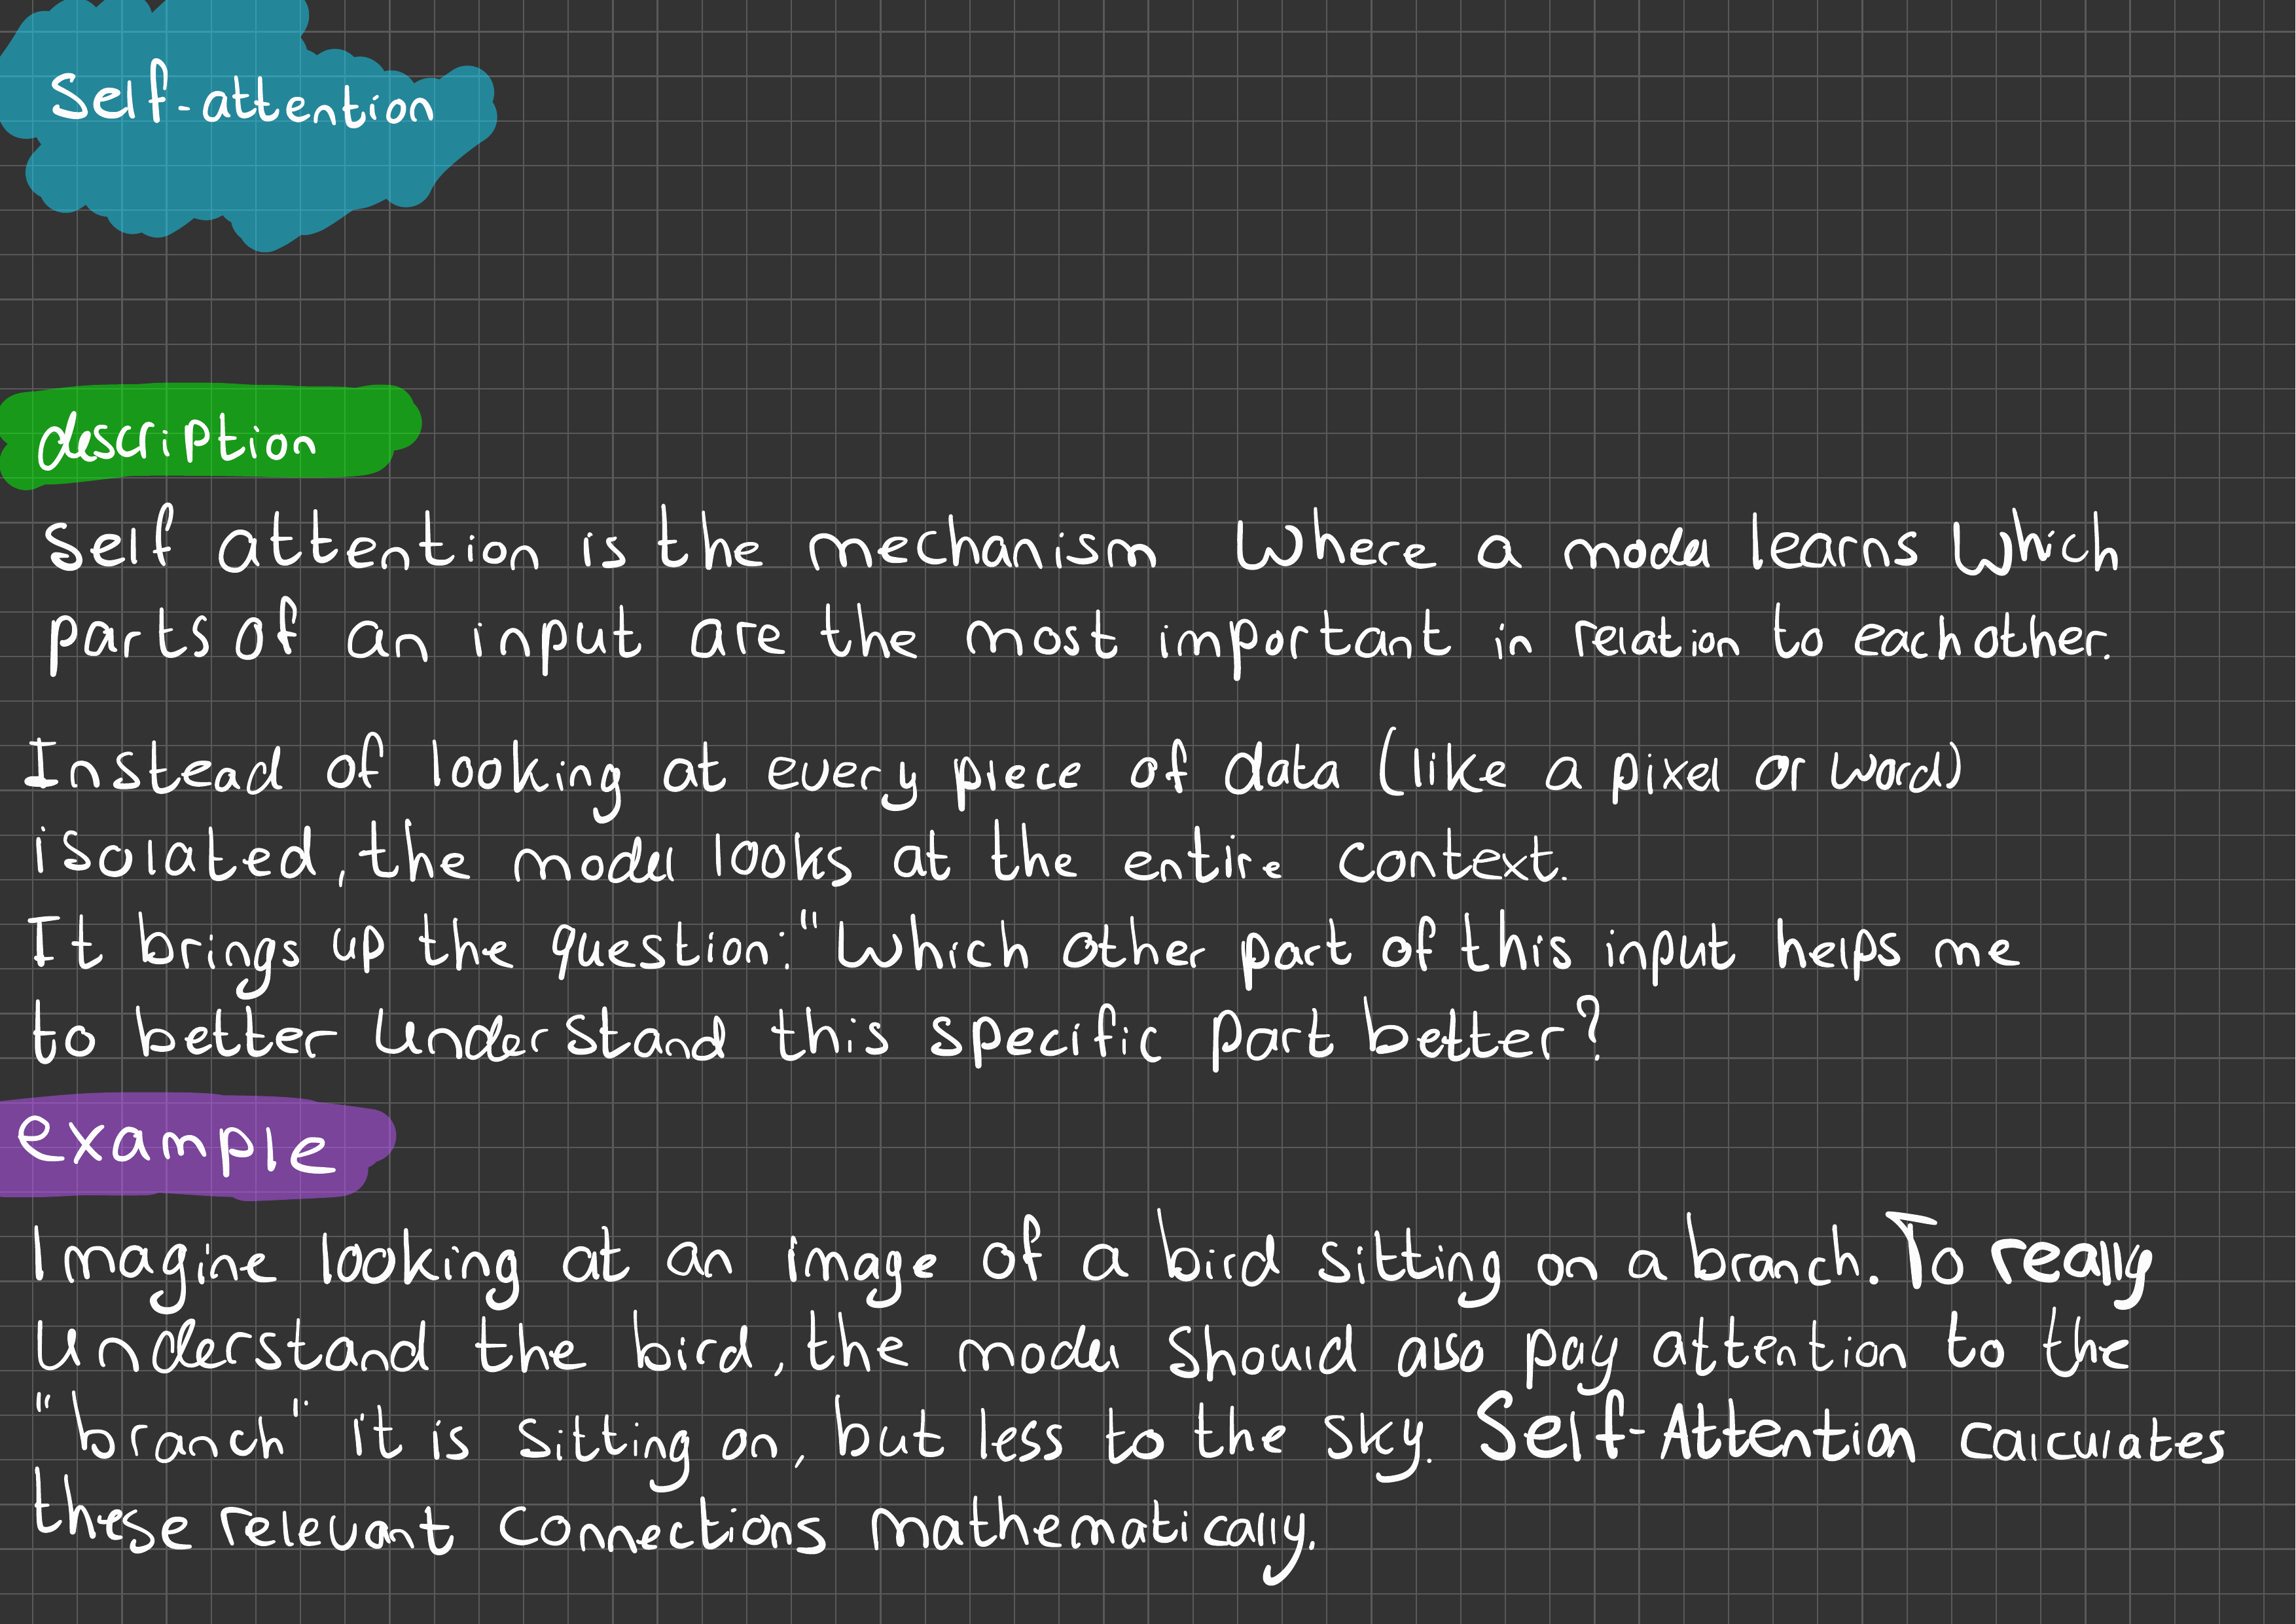 Self-attention
description
Self attention is the mechanism Where a model learns Which
parts of an input are the most important in relation to eachother.
Instead of looking at every piece of data (like a pixel or word)
isolated, the model looks at the entire context.
It brings up the question: "Which other part of this input helps me
to better understand this specific part better?
example
Imagine looking at an image of a bird sitting on a branch. To really
understand the bird, the model should also pay attention to the
"branch" it is sitting on, but less to the sky. Self-Attention calculates
these relevant connections mathematically.